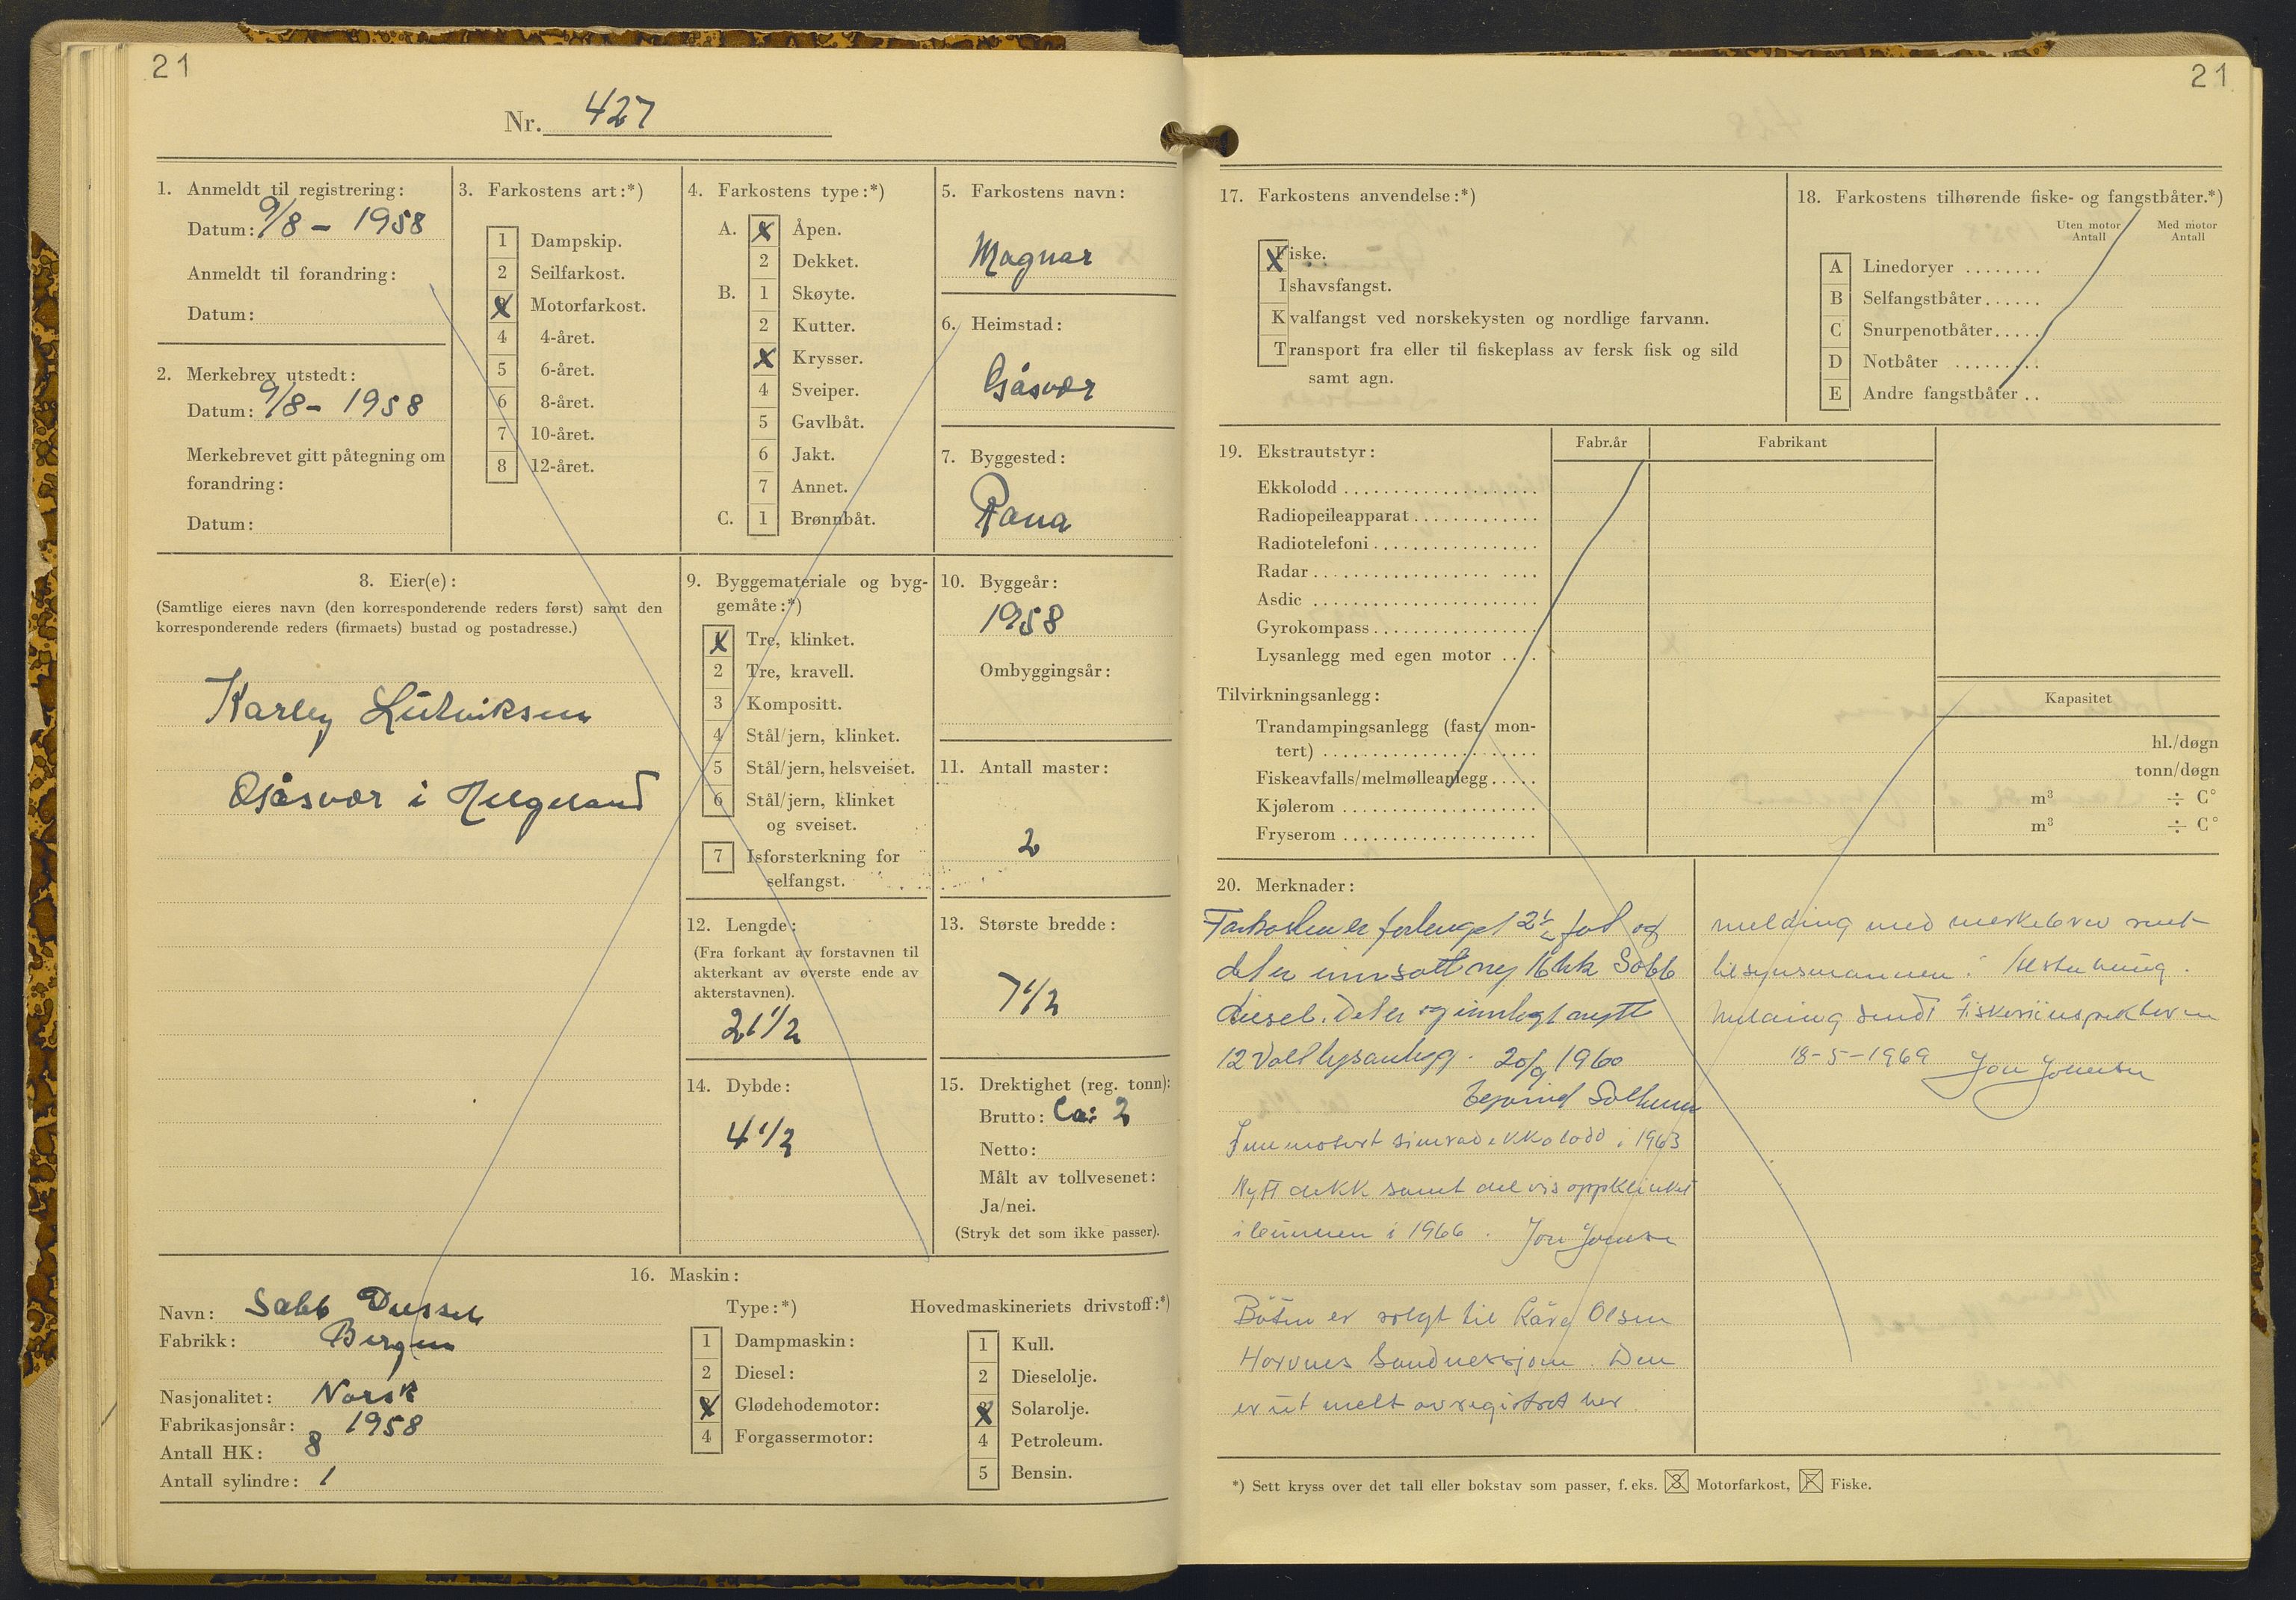 21
Nr. 427
1. Anmeldt til registrering:
Datum: 9/8 – 1958
Anmeldt til forandring:
Datum:
2. Merkebrev utstedt:
Datum: 9/8 – 1958
Merkebrevet gitt påtegning om
forandring:
Datum:
3. Farkostens art:*)
1 Dampskip.
2 Seilfarkost.
X Motorfarkost.
4 4-året.
5 6-året.
6 8-året.
7 10-året.
8 12-året.
4. Farkostens type:*)
A. X Åpen.
2 Dekket.
B. 1 Skøyte.
2 Kutter.
X Krysser.
4 Sveiper.
5 Gavlbåt.
6 Jakt.
7 Annet.
C. 1 Brønnbåt.
5. Farkostens navn:
Magnar
6. Heimstad:
Gåsvær
7. Byggested:
Rana
8. Eier(e):
(Samtlige eieres navn (den korresponderende reders først) samt den
korresponderende reders (firmaets) bustad og postadresse.)
Karley Ludviksen
Gåsvær i Helgeland
9. Byggemateriale og byg-
gemåte:*)
X Tre, klinket.
2 Tre, kravell.
3 Kompositt.
4 Stål/jern, klinket.
5 Stål/jern, helsveiset.
6 Stål/jern, klinket
og sveiset.
7 Isforsterkning for
selfangst.
10. Byggeår:
1958
Ombyggingsår:
11. Antall master:
2
12. Lengde:
(Fra forkant av forstavnen til
akterkant av øverste ende av
akterstavnen).
21 1/2
13. Største bredde:
7 1/2
14. Dybde:
4 1/2
15. Drektighet (reg. tonn):
Brutto: Ca: 2
Netto:
Målt av tollvesenet:
Ja/nei.
(Stryk det som ikke passer).
16. Maskin:
Navn: Sabb Diessel
Fabrikk: Bergen
Nasjonalitet: Norsk
Fabrikasjonsår: 1958
Antall HK: 8
Antall sylindre: 1
Type:*)
1 Dampmaskin:
2 Diesel:
X Glødehodemotor:
4 Forgassermotor:
Hovedmaskineriets drivstoff:*)
1 Kull.
2 Dieselolje.
X Solarolje.
4 Petroleum.
5 Bensin.
21
17. Farkostens anvendelse:*)
X Fiske.
Ishavsfangst.
Kvalfangst ved norskekysten og nordlige farvann.
Transport fra eller til fiskeplass av fersk fisk og sild
samt agn.
18. Farkostens tilhørende fiske- og fangstbåter.*)
Uten motor Med motor
Antall Antall
A Linedoryer ........
B Selfangstbåter......
C Snurpenotbåter.....
D Notbåter .........
E Andre fangstbåter ..
19. Ekstrautstyr:
Fabr.år Fabrikant
Ekkolodd ....................
Radiopeileapparat.............
Radiotelefoni.................
Radar.......................
Asdic .......................
Gyrokompass.................
Lysanlegg med egen motor ....
Tilvirkningsanlegg:
Trandampingsanlegg (fast mon-
tert) ......................
Fiskeavfalls/melmølleanlegg.....
Kjølerom ....................
Fryserom ....................
Kapasitet
hl./døgn
tonn/døgn
m³ ÷ C°
m³ ÷ C°
20. Merknader:
Farkosten er forlenget 2 1/2 fot og
det er innsatt ny 16 hk Sabb
diesel. Det er og innlagt nytt
12 Volt lysanlegg. 20/9 1960
Eyvind Solhaun
Inn motert simrad ekkolodd i 1963
Nytt dekk samt delvis oppklinket
i 1966. Jon Johnsen
Båten er solgt til Kåre Olsen
Horvnes Sandnessjøen. Den
er ut melt av registret her.
melding med merkebrev sent
tilsynsmannen i Alstahaug.
Melding sendt Fiskeriinspektøren
18-5-1969 Jon Johnsen
*) Sett kryss over det tall eller bokstav som passer, f. eks. 3 Motorfarkost, F Fiske.